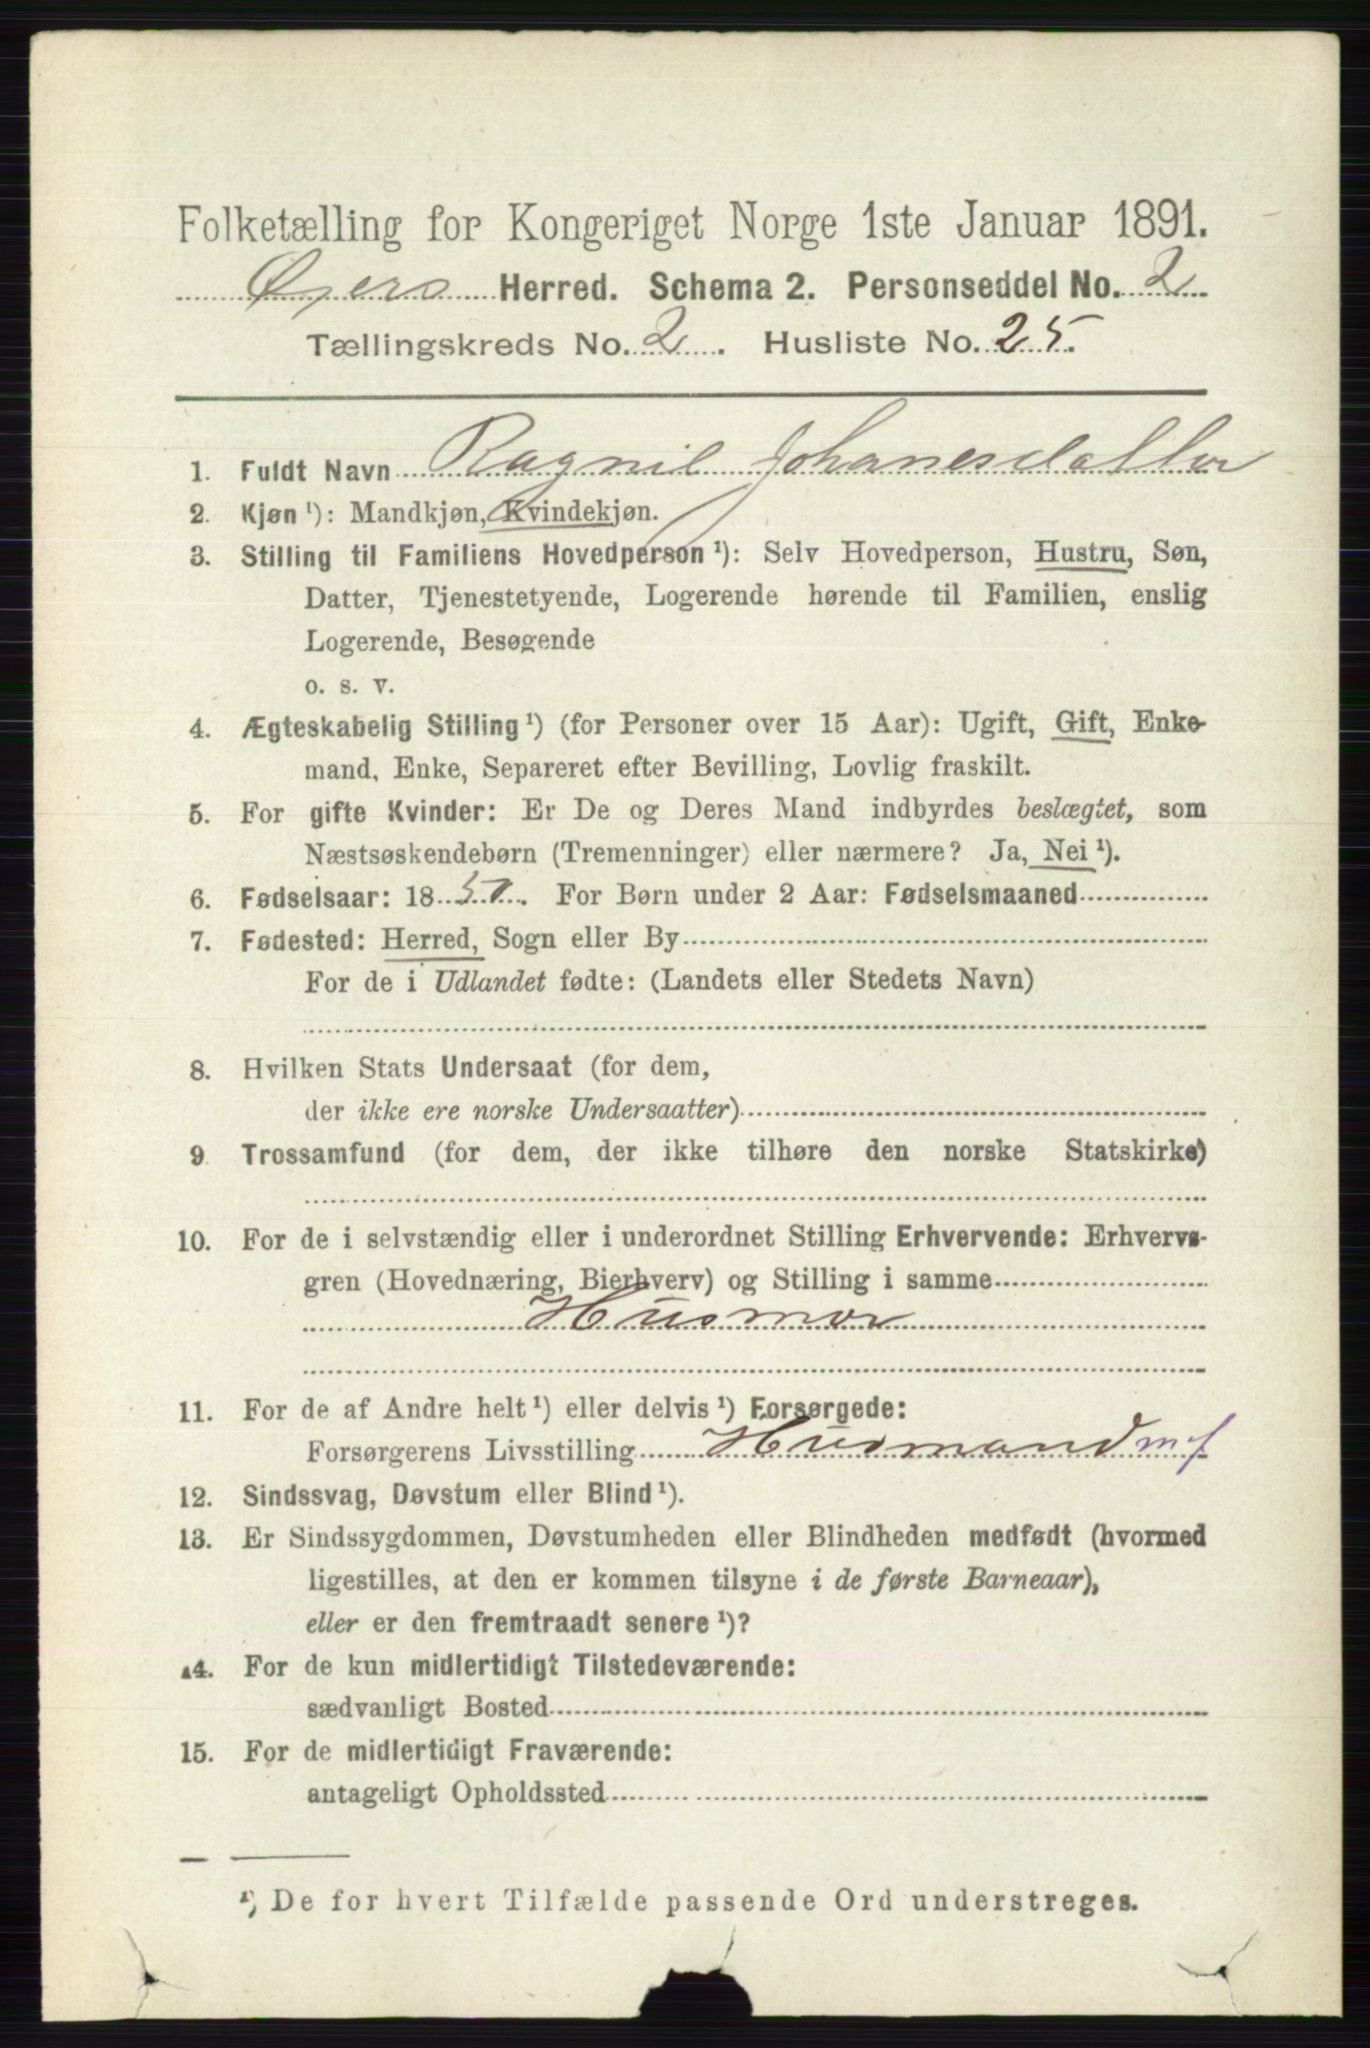 Folketælling for Kongeriget Norge 1ste Januar 1891.
Øyers Herred. Schema 2. Personseddel No. 2
Tællingskreds No. 2. Husliste No. 25.
1. Fuldt Navn Ragnil Johanesdatter
2. Kjøn ¹): Mandkjøn, Kvindekjøn.
3. Stilling til Familiens Hovedperson ¹): Selv Hovedperson, Hustru, Søn,
Datter, Tjenestetyende, Logerende hørende til Familien, enslig
Logerende, Besøgende
o. s. v.
4. Ægteskabelig Stilling ¹) (for Personer over 15 Aar): Ugift, Gift, Enke-
mand, Enke, Separeret efter Bevilling, Lovlig fraskilt.
5. For gifte Kvinder: Er De og Deres Mand indbyrdes beslægtet, som
Næstsøskendebørn (Tremenninger) eller nærmere? Ja, Nei ¹).
6. Fødselsaar: 18 51. For Børn under 2 Aar: Fødselsmaaned
7. Fødested: Herred, Sogn eller By
For de i Udlandet fødte: (Landets eller Stedets Navn)
8. Hvilken Stats Undersaat (for dem,
der ikke ere norske Undersaatter)
9 Trossamfund (for dem, der ikke tilhøre den norske Statskirke)
10. For de i selvstændig eller i underordnet Stilling Erhvervende: Erhvervs-
gren (Hovednæring, Bierhverv) og Stilling i samme
Husmor
11. For de af Andre helt ¹) eller delvis ¹) Forsørgede:
Forsørgerens Livsstilling Husmand mf
12. Sindssvag, Døvstum eller Blind ¹).
13. Er Sindssygdommen, Døvstumheden eller Blindheden medfødt (hvormed
ligestilles, at den er kommen tilsyne i de første Barneaar),
eller er den fremtraadt senere ¹)?
14. For de kun midlertidigt Tilstedeværende:
sædvanligt Bosted
15. For de midlertidigt Fraværende:
antageligt Opholdssted
¹) De for hvert Tilfælde passende Ord understreges.